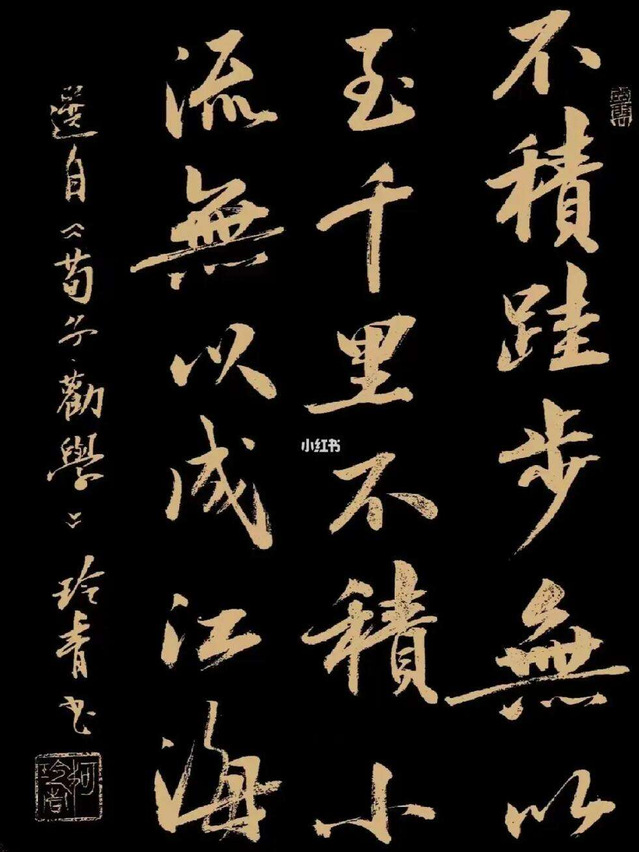 不積跬步無以
至千里不積小
流無以成江海
選自《荀子·勸學》玲青书
柯玲青
小红书